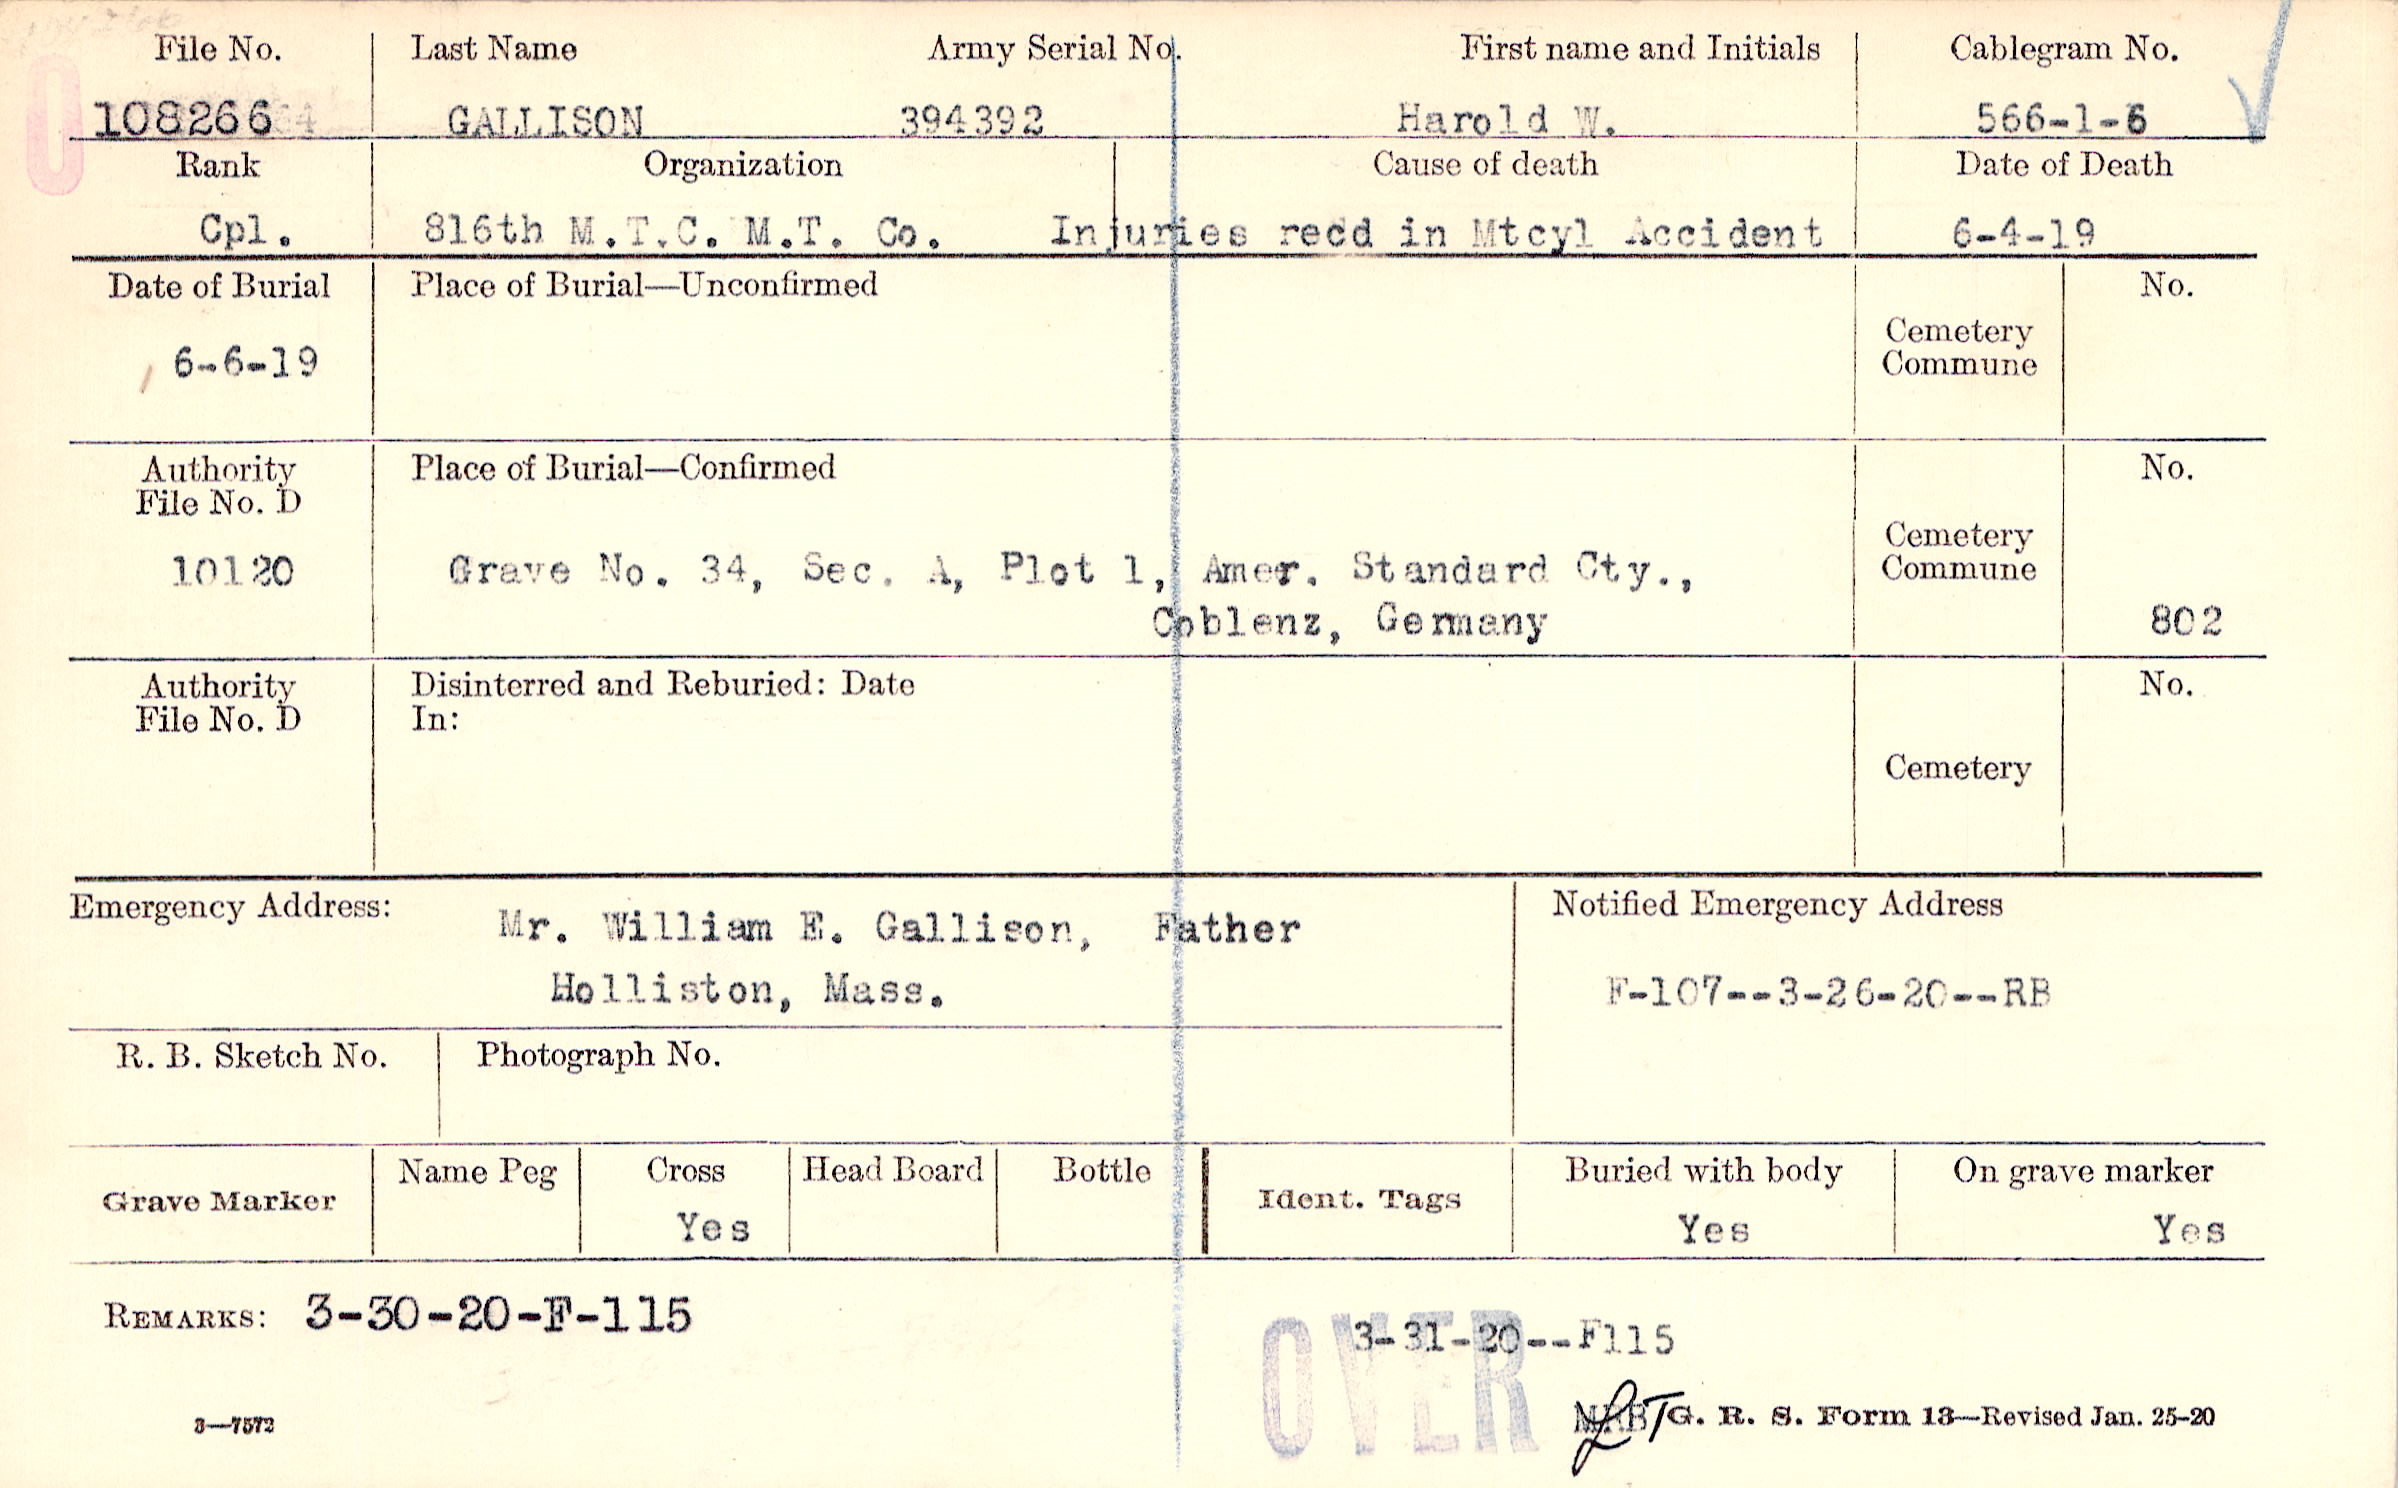 File No. Last Name Army Serial No. First name and Initials Cablegram No.
108266 GALLISON 394392 Harold W. 566-1-6
Rank Organization Cause of death Date of Death
Cpl. 816th M.T.C. M.T. Co. Injuries recd in Mtcyl Accident 6-4-19
Date of Burial Place of Burial—Unconfirmed No.
Cemetery
Commune
6-6-19
Authority Place of Burial—Confirmed No.
File No. D
Cemetery
Commune
10120 Grave No. 34, Sec. A, Plot 1, Amer. Standard Cty.,
Coblenz, Germany 802
Authority Disinterred and Reburied: Date No.
File No. D In:
Cemetery
Emergency Address: Notified Emergency Address
Mr. William E. Gallison, Father
Holliston, Mass. F-107--3-26-20--RB
R. B. Sketch No. Photograph No.
Grave Marker Name Peg Cross Head Board Bottle Ident. Tags Buried with body On grave marker
Yes Yes Yes
REMARKS: 3-30-20-F-115
3-31-20--F115
OVER
3—7572 MRB LT G. R. S. Form 13—Revised Jan. 25-20